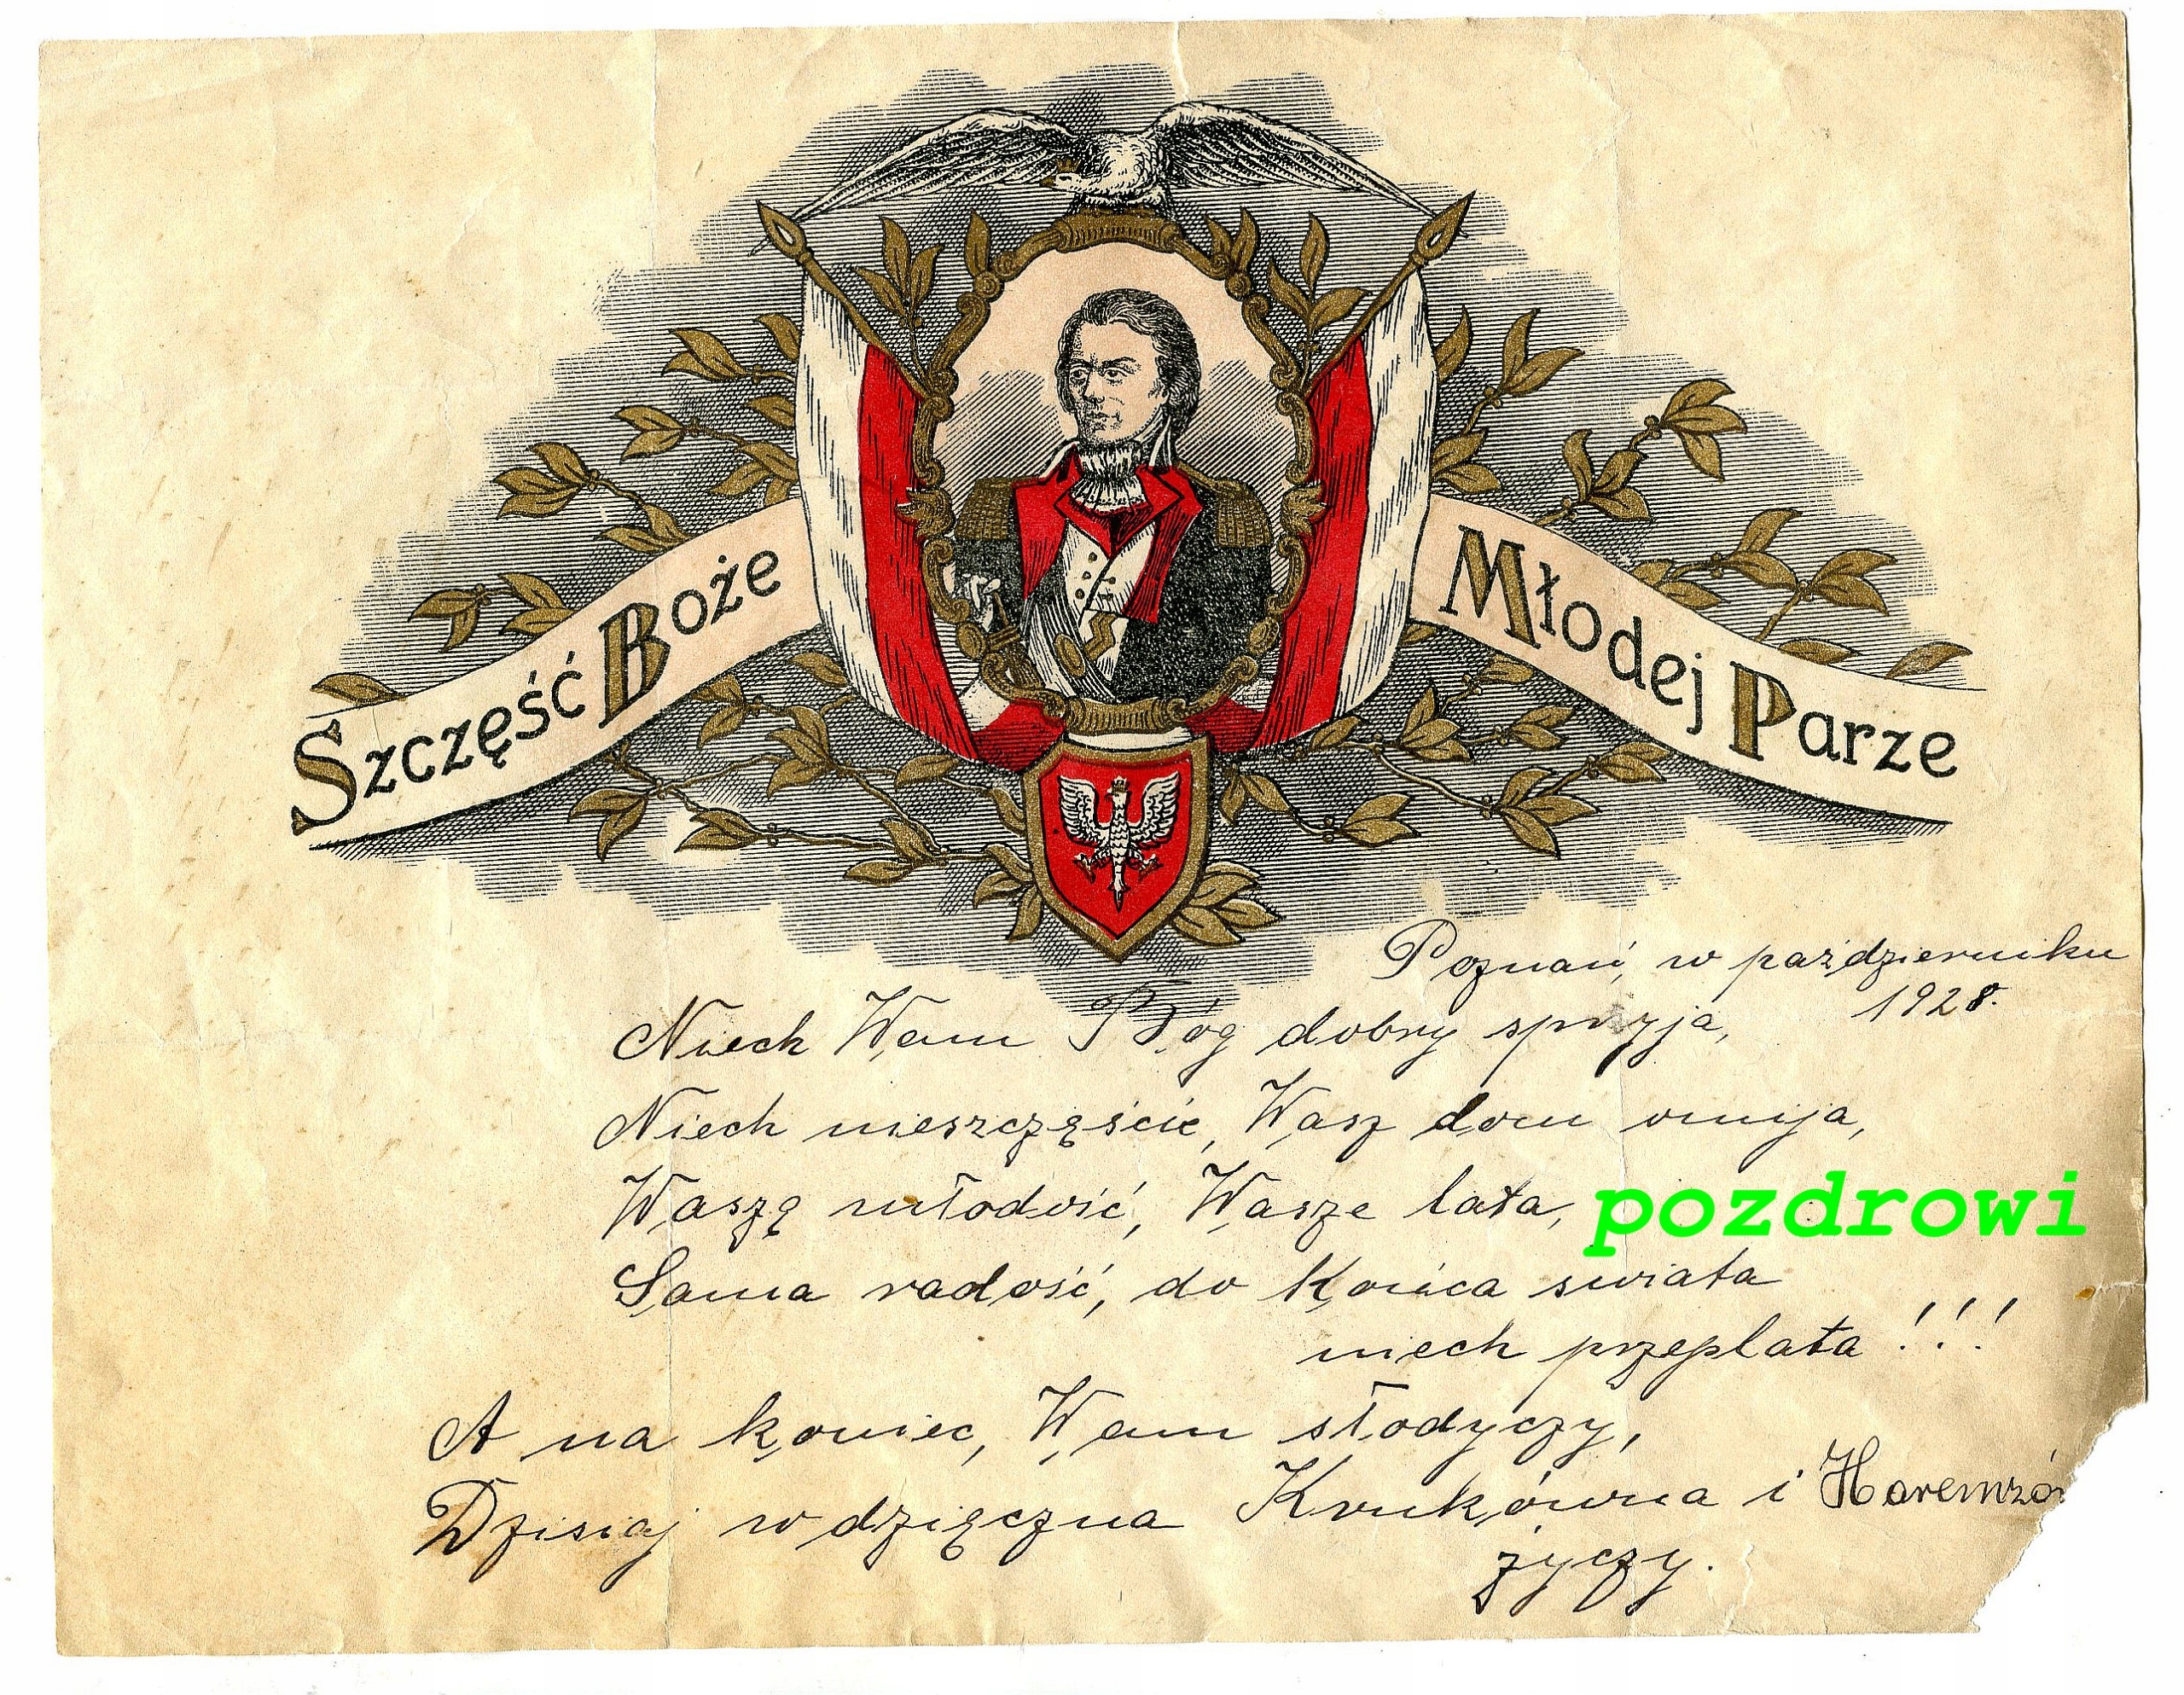 Szczęść Boże Młodej Parze
Poznań, w październiku
1928.
Niech Wam Bóg dobry sprzyja,
Niech nieszczęście, Wasz dom omija,
Waszą młodość, Wasze lata,
pozdrowi
Sama radość, do Końca swiata
niech przeplata!!!
A na koniec, Wam słodyczy,
Dzisiaj wdzięczna Krukówna i
życzy.